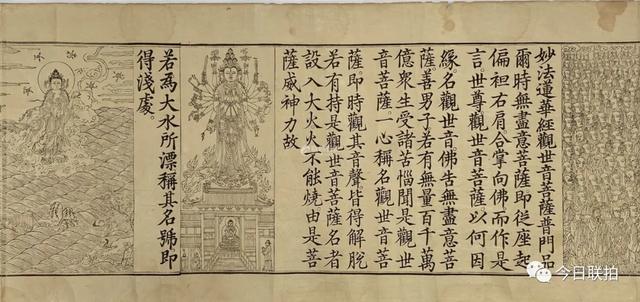 妙法蓮華經觀世音菩薩普門品
爾時無盡意菩薩即從座起
偏袒右肩合掌向佛而作是
言世尊觀世音菩薩以何因
緣名觀世音佛告無盡意菩
薩善男子若有無量百千萬
億眾生受諸苦惱聞是觀世
音菩薩一心稱名觀世音菩
薩即時觀其音聲皆得解脫
若有持是觀世音菩薩名者
設入大火火不能燒由是菩
薩威神力故
若為大水所漂稱其名號即
得淺處。
今日联拍